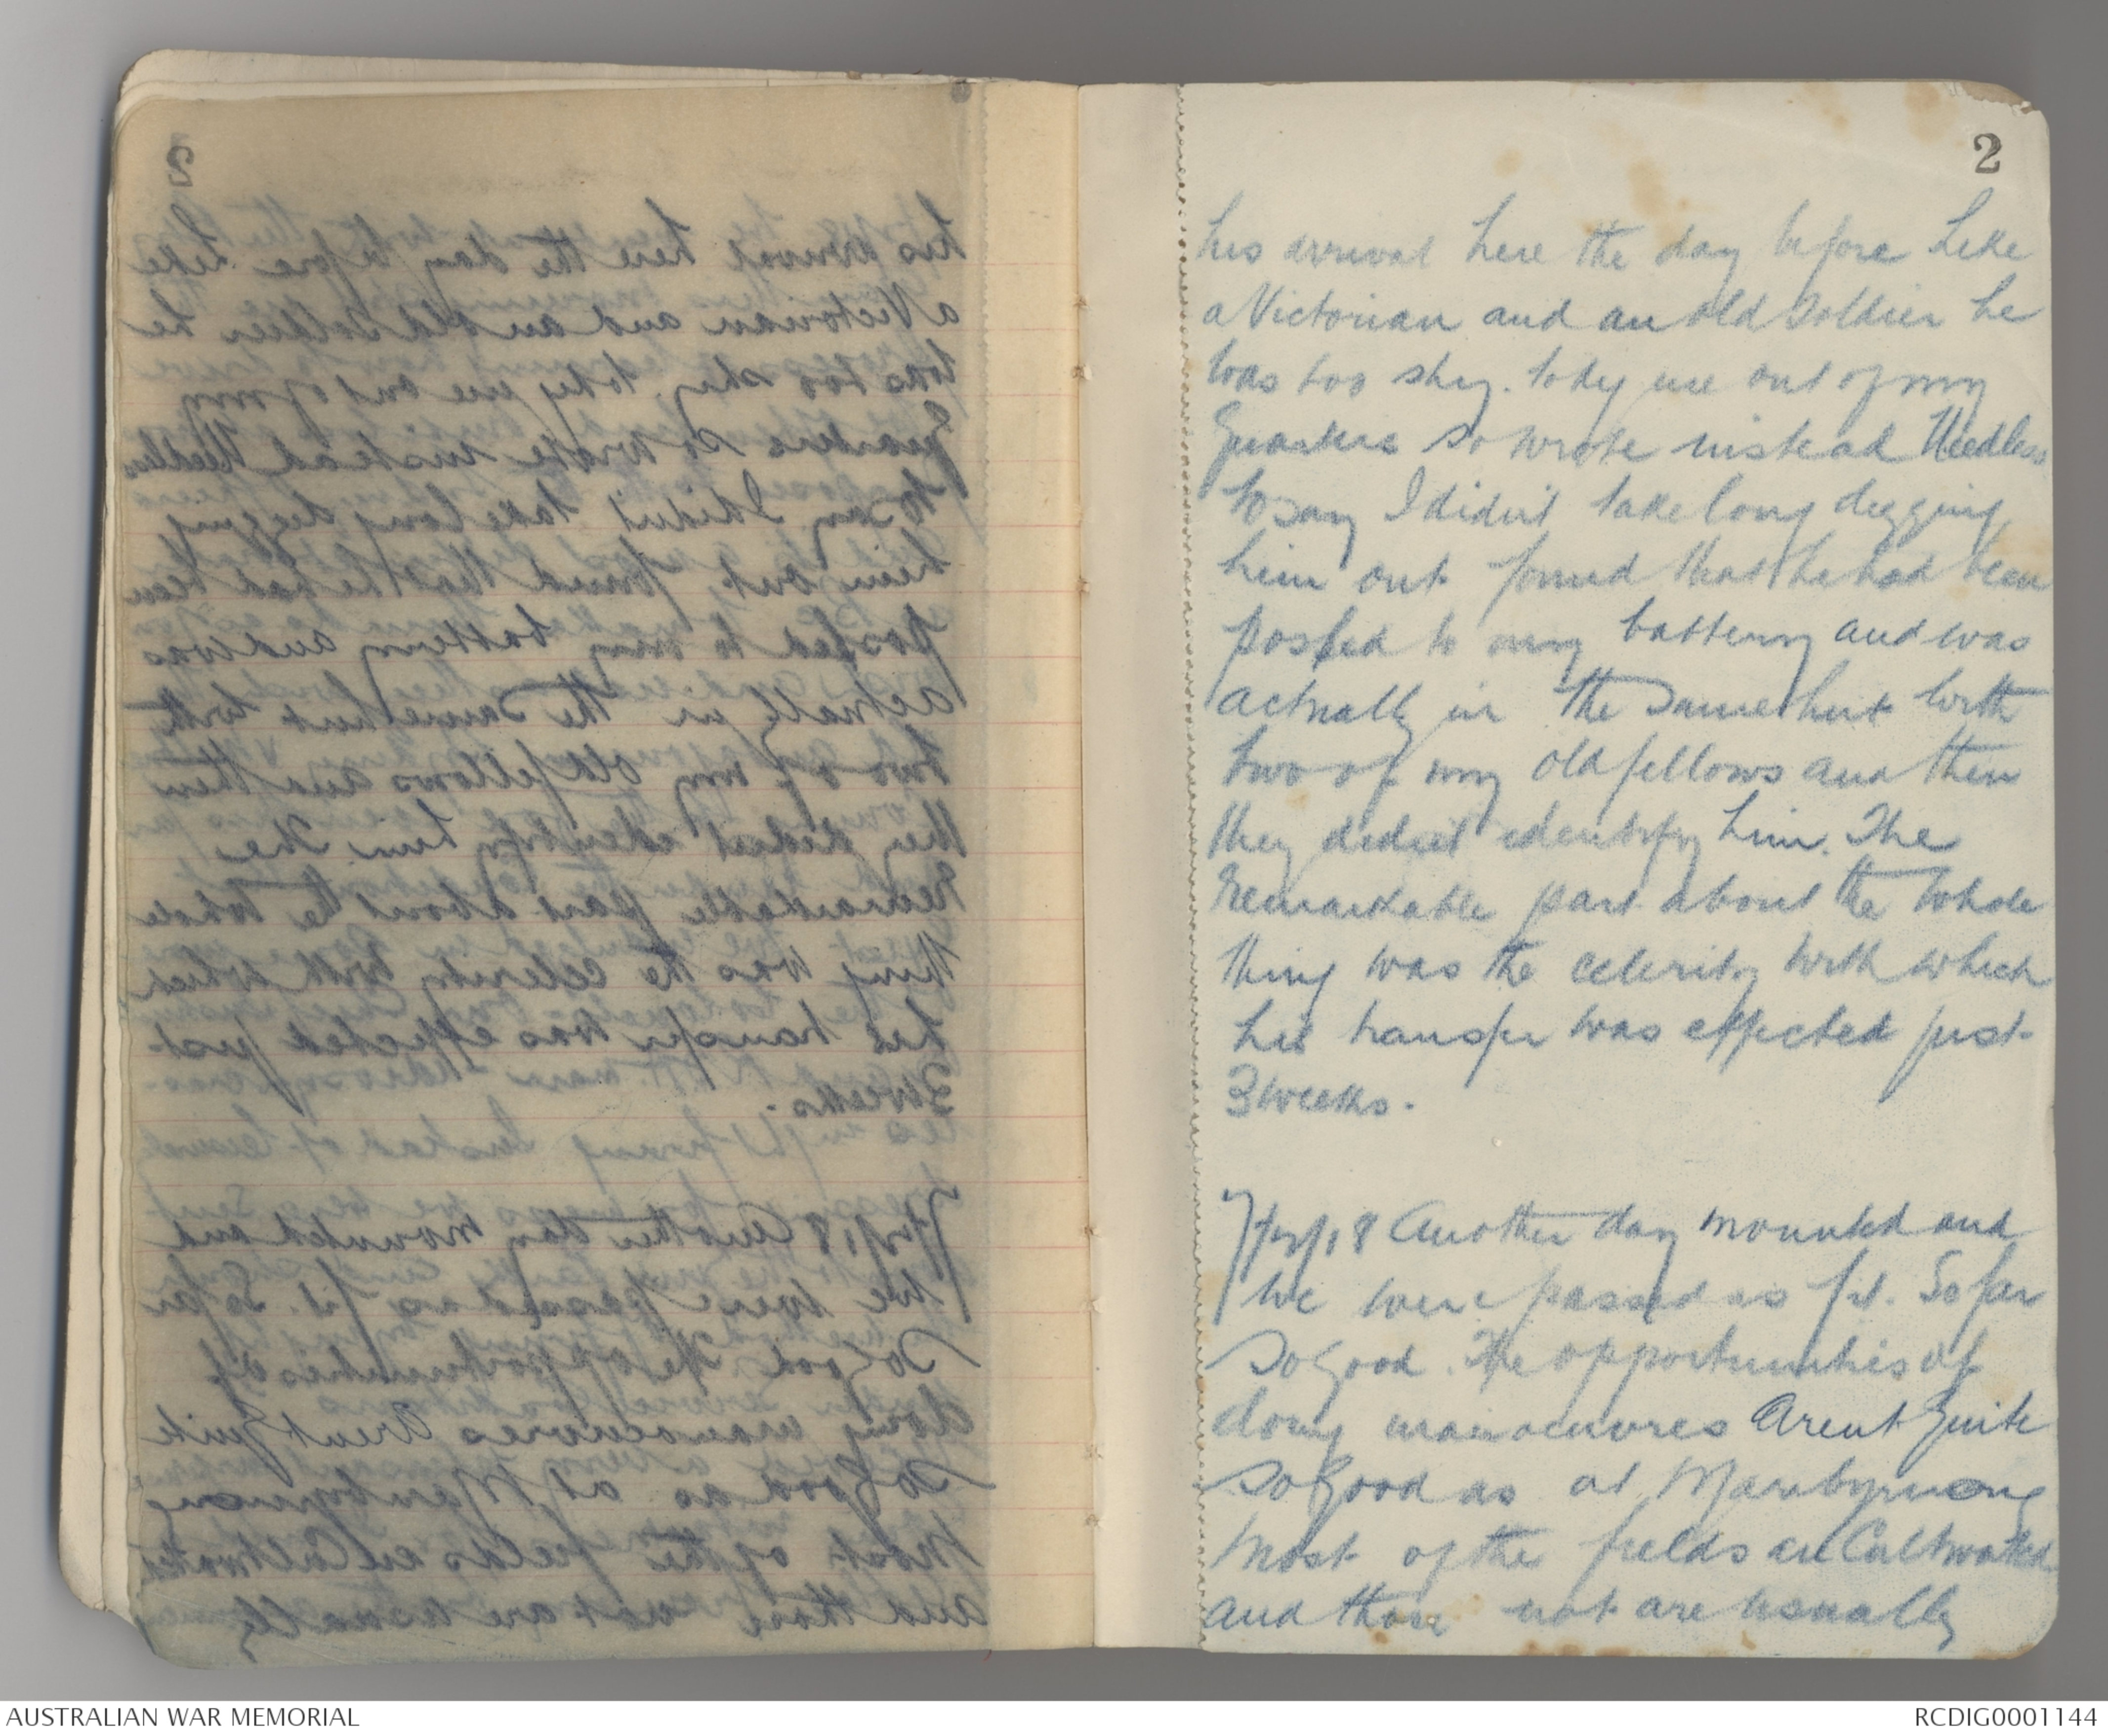 2
his arrival here the day before Like
a Victorian and an old Soldier he
was too shy. to dig me out of my
Quarters so wrote instead Needless
to say I didn't take long digging
him out found that he had been
posted to my battery and was
actually in the same hut with
two of my old fellows and then
they didnt identify him. The
Remarkable part about the whole
thing was the celerity with which
his transfer was effected just
3 weeks.
18 Another day mounted and
We were passed as fit. So far
So Good. The opportunities of
doing manoeuvres Arent Quite
so Good as at Maribyrnong
Most of the fields are Cultivated
and those not are usually
AUSTRALIAN WAR MEMORIAL
RCDIG0001144